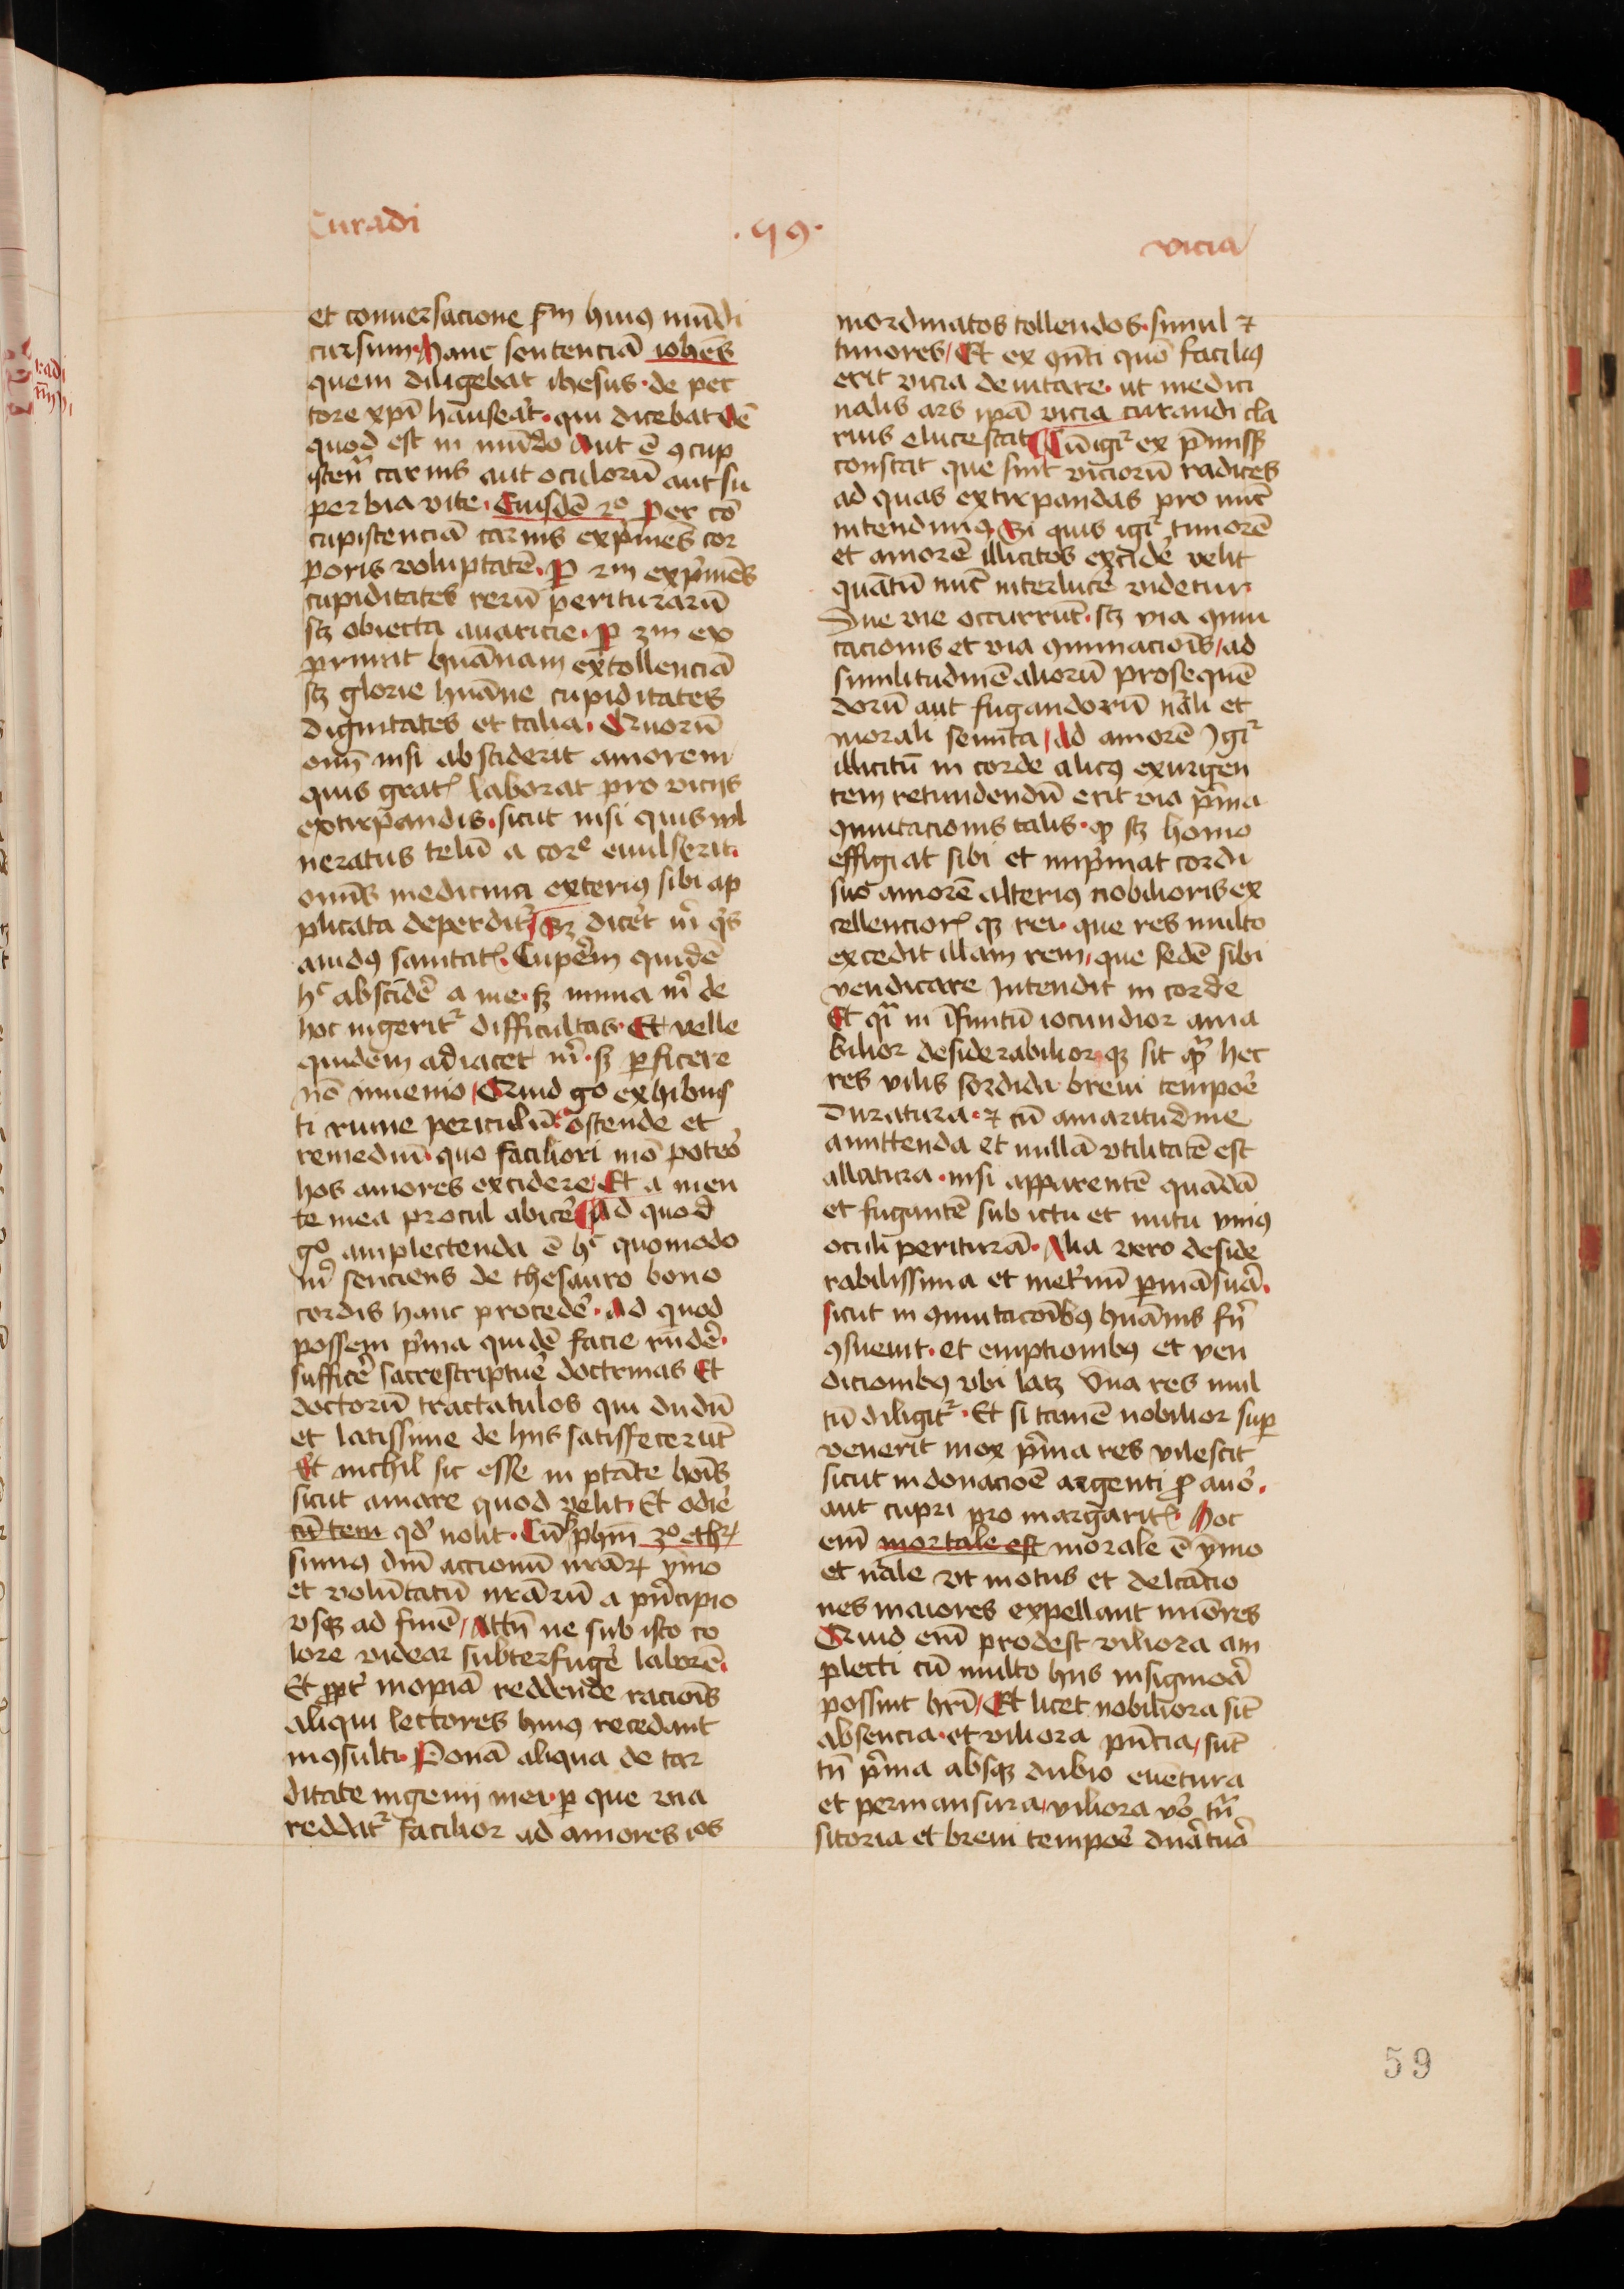 Curadi
.59.
vicia
et conuersacione scdm huiꝰ mūdi
cursum. Hanc sentenciā iohēs
quem diligebat ihesus. de pec
tore xp̄i hauseat̉. qui dicebat Oē
quod est in mūdo Aut ē ꝯcup
iscen̄ carnis aut oculorū aut su
perbia vite. Eiusdē 2º Per cō
cupiscenciā carnis exp̉mēs cor
poris voluptatē. ꝑ 2m exp̉mēs
cupiditates rerū periturarū
scꝫ obiecta auaricie. ꝑ 3m ex
primit hūanam extollenciā
scꝫ glorie hūane cupiditates
dignitates et talia. Quorū
om̄ nisi absciderit amorem
quis gratꝭ laborat pro vicijs
extirpandis. sicut nisi quis wl
neratus telū a cor̉e euulserit.
om̄is medicina exterius sibi ap
plicata deperdit̉ Sꝫ dicet̉ m̉ q̉s
auidꝰ sanitatꝭ. Cuper̉em quidē
hᶜ abscīder̉e a me. sꝫ nimia m̉ de
hoc ingerit̉ difficultas. Et velle
quidem adiacet m̉. sꝫ ꝑficere
nō inuenio Quid gͦ exhibuis
ti ruine periculū. ostende et
remediū. quo faciliori mō potero
hos amores excidere Et a men
te mea procul abicer̉e Ad quod
gͦ amplectenda ē hᶜ quomodo
m̉ senciens de thesauro bono
cordis hanc proceder̉e. Ad quod
possem p̉ma quidē facie rn̄der̉e.
sufficer̉e sacrescriptur̉e doctrinas Et
doctorū tractatulos qui dudū
et latissime de hijs satisfecerūt
Et nichil sic esse in ptāte hoīs
sicut amare quod velit. Et odir̉e
qd̉ nolit. Cū ph̄m 3º ethꝝ
simus dn̄i accionū nr̄aꝝ ymo
et volūtatū nr̄arū a prīcipio
vsqꝫ ad finē Attn̄ ne sub isto co
lore videar subterfuger̉e laborē.
Et ppt̉ inopiā reddende racioīs
aliqui lectores huiꝰ recedant
inꝯsulti. Ponā aliqua de tar
ditate ingenij mei. ꝑ que via
reddat̉ facilior ad amores ıos
inordinatos tollendos. simul ⁊
timores Et ex ꝯn̄ti quō faciliꝰ
erit vicia deuitare. ut medici
nalis ars ip̄a vicia curandi cla
rius elucescat Cū igit̉ ex p̄missꝭ
constat que sint viciorū radices
ad quas extirpandas pro nūc
intendimꝰ Si quis igit̉ timorē
et amorē illicitos excīder̉e velit
quātū nūc interlucer̉e videtur
Due vie occurrūt. scꝫ via ꝯmu
tacionis et via ꝯminacioīs ad
similitudinē aliorū prosequē
dorū aut fugandorū nāli et
morali semita Ad amorē Igit̉
illicitū in corde alicꝰ exurgen
tem retundendū erit via p̉ma
ꝯmutacionis talis. ꝙ scꝫ homo
effigiat sibi et inp̉mat cordi
suo amorē alteriꝰ nobilioris ex
cellenciorꝭ qꝫ rei. que res multo
excedit illam rem que sedē sibi
vendicare Intendit in corde
Et q̄ in īfinitū iocundior ama
bilior desiderabilior qꝫ sit q̄ hec
res vilis sordida breui tempor̉e
Duratura. ⁊ cū amaritudine
amittenda et nullā vtilitatē est
allatura. nisi apparentē quādā
et fugantē sub ictu et nutu vniꝰ
oculi periturā. Alia vero deside
rabilissima et inet̉nū ꝑmāsur̉a.
sicut in ꝯmutacōībꝰ hūanis fīēri
ꝯsueuit. et emptionibꝰ et ven
dicionibꝰ vbi licꝫ Vna res mul
tū diligit̉. Et si tamē nobilior suꝑ
venerit mox p̉ma res vilescit
sicut in donacioē argenti ꝓ auro.
aut cupri pro margaritꝭ. Hoc
em̄ mortale est morale ē ymo
et nāle vt motus et delcācio
nes maiores expellant mīores
Quid em̄ prodest viliora am
plecti cū multo hijs insigniora
possint hr̄i Et licet nobiliora sīt
absencia. et viliora pn̄cia sūt
tn̄ p̉ma absqꝫ dubio euētura
et permansura viliora vº trā
sitoria et breui tempor̉e duratura
59